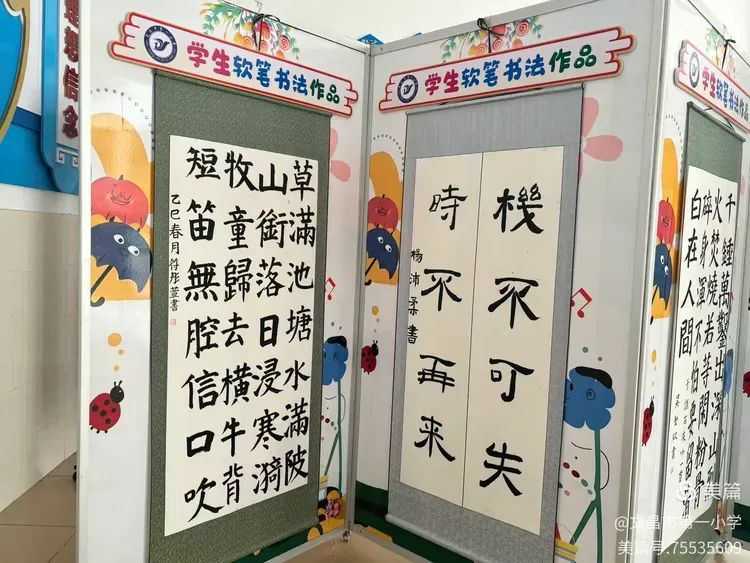 想信念
学生软笔书法作品
草滿池塘水滿陂
山銜落日浸寒漪
牧童歸去横牛背
短笛無腔信口吹
乙巳春月符彤萱書
学生软笔书法作品
機不可失
時不再来
楊沛柔書
学生
千錘萬鑿出深山
火焚燒若等閒粉骨
碎身渾不怕要留
白在人間
美篇
@文昌市第一小学
美篇号:75535609